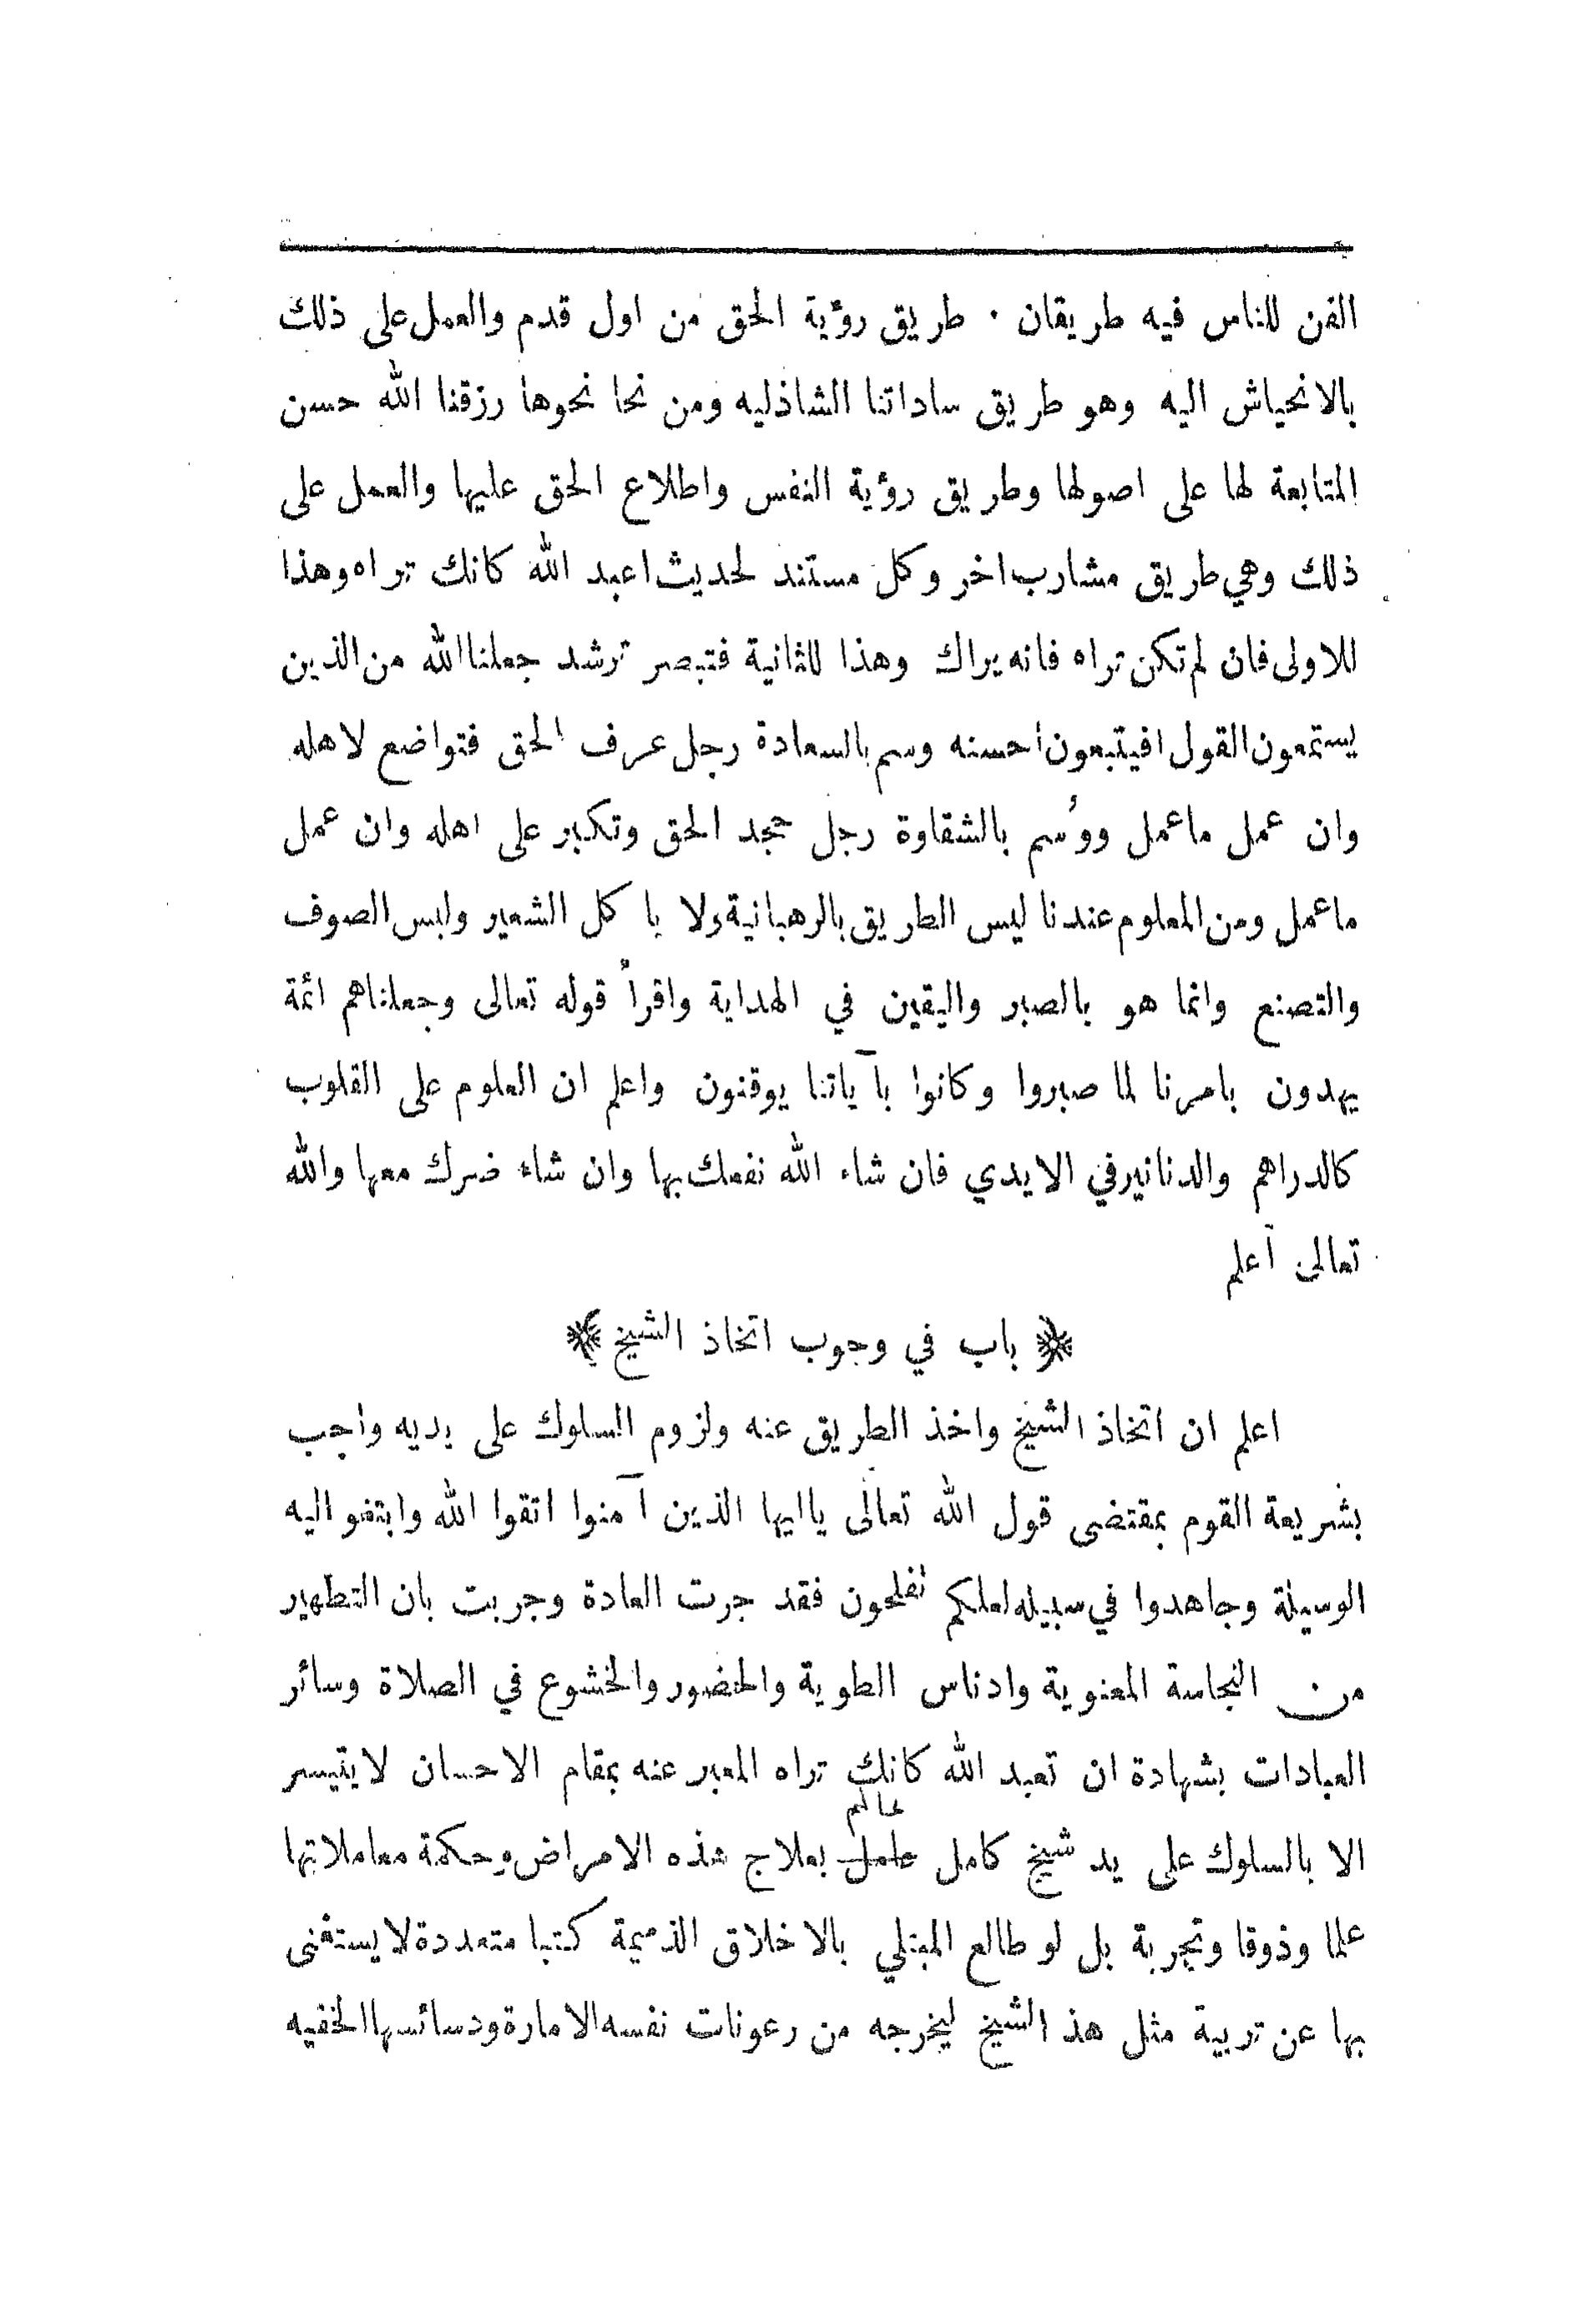 الفن للناس فيه طريقان . طريق رؤية الحق من اول قدم والعمل على ذلك
بالانحياش اليه وهو طريق ساداتنا الشاذليه ومن نحا نحوها رزقنا الله حسن
المتابعة لها على اصولها وطريق رؤية النفس واطلاع الحق عليها والعمل على
ذلك وهي طريق مشارب اخر وكل مستند لحديث اعبد الله كانك تراه وهذا
للاولى فان لم تكن تراه فانه يراك وهذا للثانية فتبصر ترشد جعلنا الله من الذين
يستمعون القول افيتبعون احسنه وسم بالسعادة رجل عرف الحق فتواضع لاهله
وان عمل ماعمل ووُسم بالشقاوة رجل جحد الحق وتكبر على اهله وان عمل
ماعمل ومن المعلوم عندنا ليس الطريق بالرهبانية ولا با كل الشعير ولبس الصوف
والتصنع وانما هو بالصبر واليقين في الهداية واقرأ قوله تعالى وجعلناهم ائمة
يهدون بامرنا لما صبروا وكانوا بآياتنا يوقنون واعلم ان العلوم على القلوب
كالدراهم والدنانير في الايدي فان شاء الله نفعك بها وان شاء ضرك معها والله
تعالى أعلم
﴿ باب في وجوب اتخاذ الشيخ ﴾
اعلم ان اتخاذ الشيخ واخذ الطريق عنه ولزوم السلوك على يديه واجب
بشريعة القوم بمقتضى قول الله تعالى ياايها الذين آمنوا اتقوا الله وابتغو اليه
الوسيلة وجاهدوا في سبيله لعلكم تفلحون فقد جرت العادة وجربت بان التطهير
من النجاسة المعنوية وادناس الطوية والحضور والخشوع في الصلاة وسائر
العبادات بشهادة ان تعبد الله كانك تراه المعبر عنه بمقام الاحسان لايتيسر
عالم
الا بالسلوك على يد شيخ كامل عامل بعلاج هذه الامراض وحكمة معاملاتها
علما وذوقا وتجربة بل لو طالع المبتلي بالاخلاق الذميمة كتبا متعددة لايستغنى
بها عن تربية مثل هذ الشيخ ليخرجه من رعونات نفسه الامارة ودسائسها الخفيه